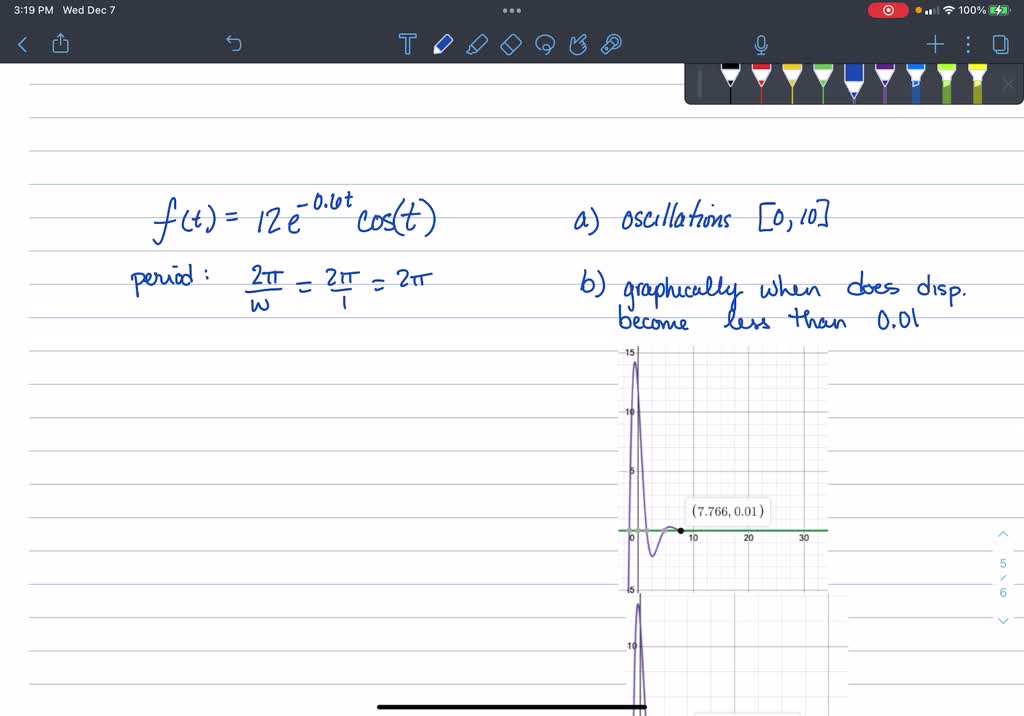 3:19 PM Wed Dec 7
100%
f(t) = 12e^-0.6t cos(t)
a) oscillations [0,10]
period: 2π/w = 2π/1 = 2π
b) graphically when does disp.
become less than 0.01
15
10
5
(7.766, 0.01)
0 10 20 30
5
10
5
6